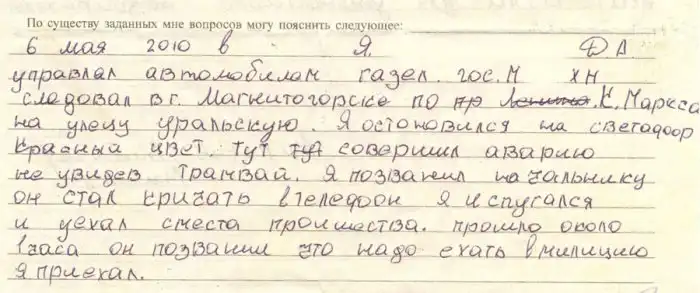 По существу заданных мне вопросов могу пояснить следующее:
6 мая 2010 в Я. Д А.
управлал автомобилам газел. гос. М ХН
следовал в г. Магнитогорске по пр Ленина К. Маркса
на улецу уральскую. Я остоновился на светадоор
красный цвет. тут тут совершил аварию
не увидев трамвай. Я позванил начальнику
он стал кричать в теледоон я испугался
и уехал сместа проишества. прошло около
1 часа он позванил что надо ехать в милицию
я приехал.